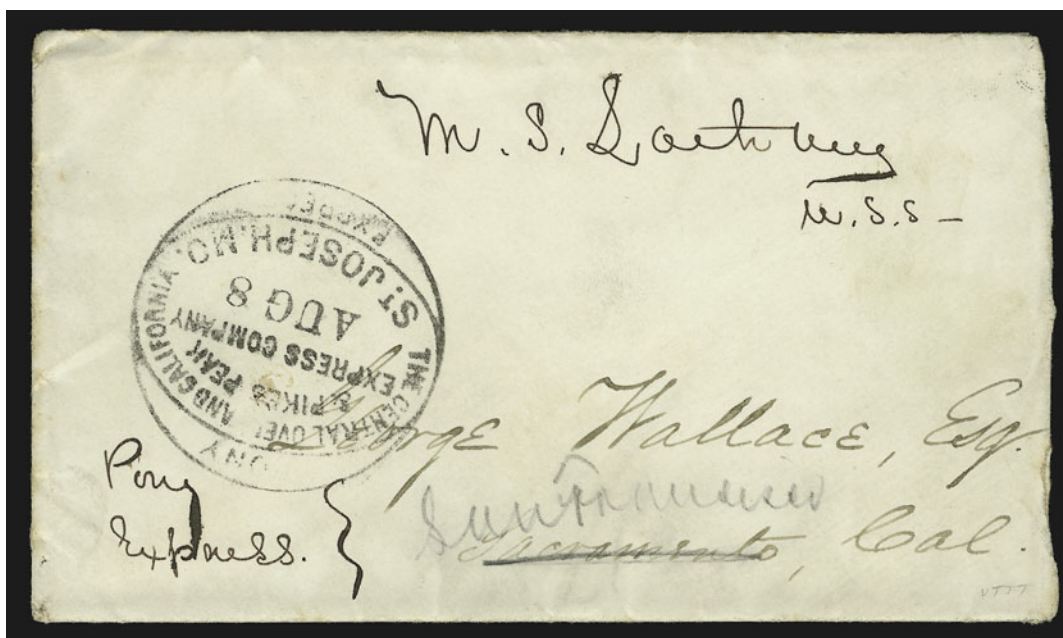 M. S. Latham
U.S.S -
PONY
EXPRE
THE CENTRAL OVE AND CALIFORNIA
& PIKES PEAK
EXPRESS COMPANY
AUG 8
ST. JOSEPH. MO.
George Wallace, Esq.
San Francisco
Sacramento, Cal.
Pony
Express.